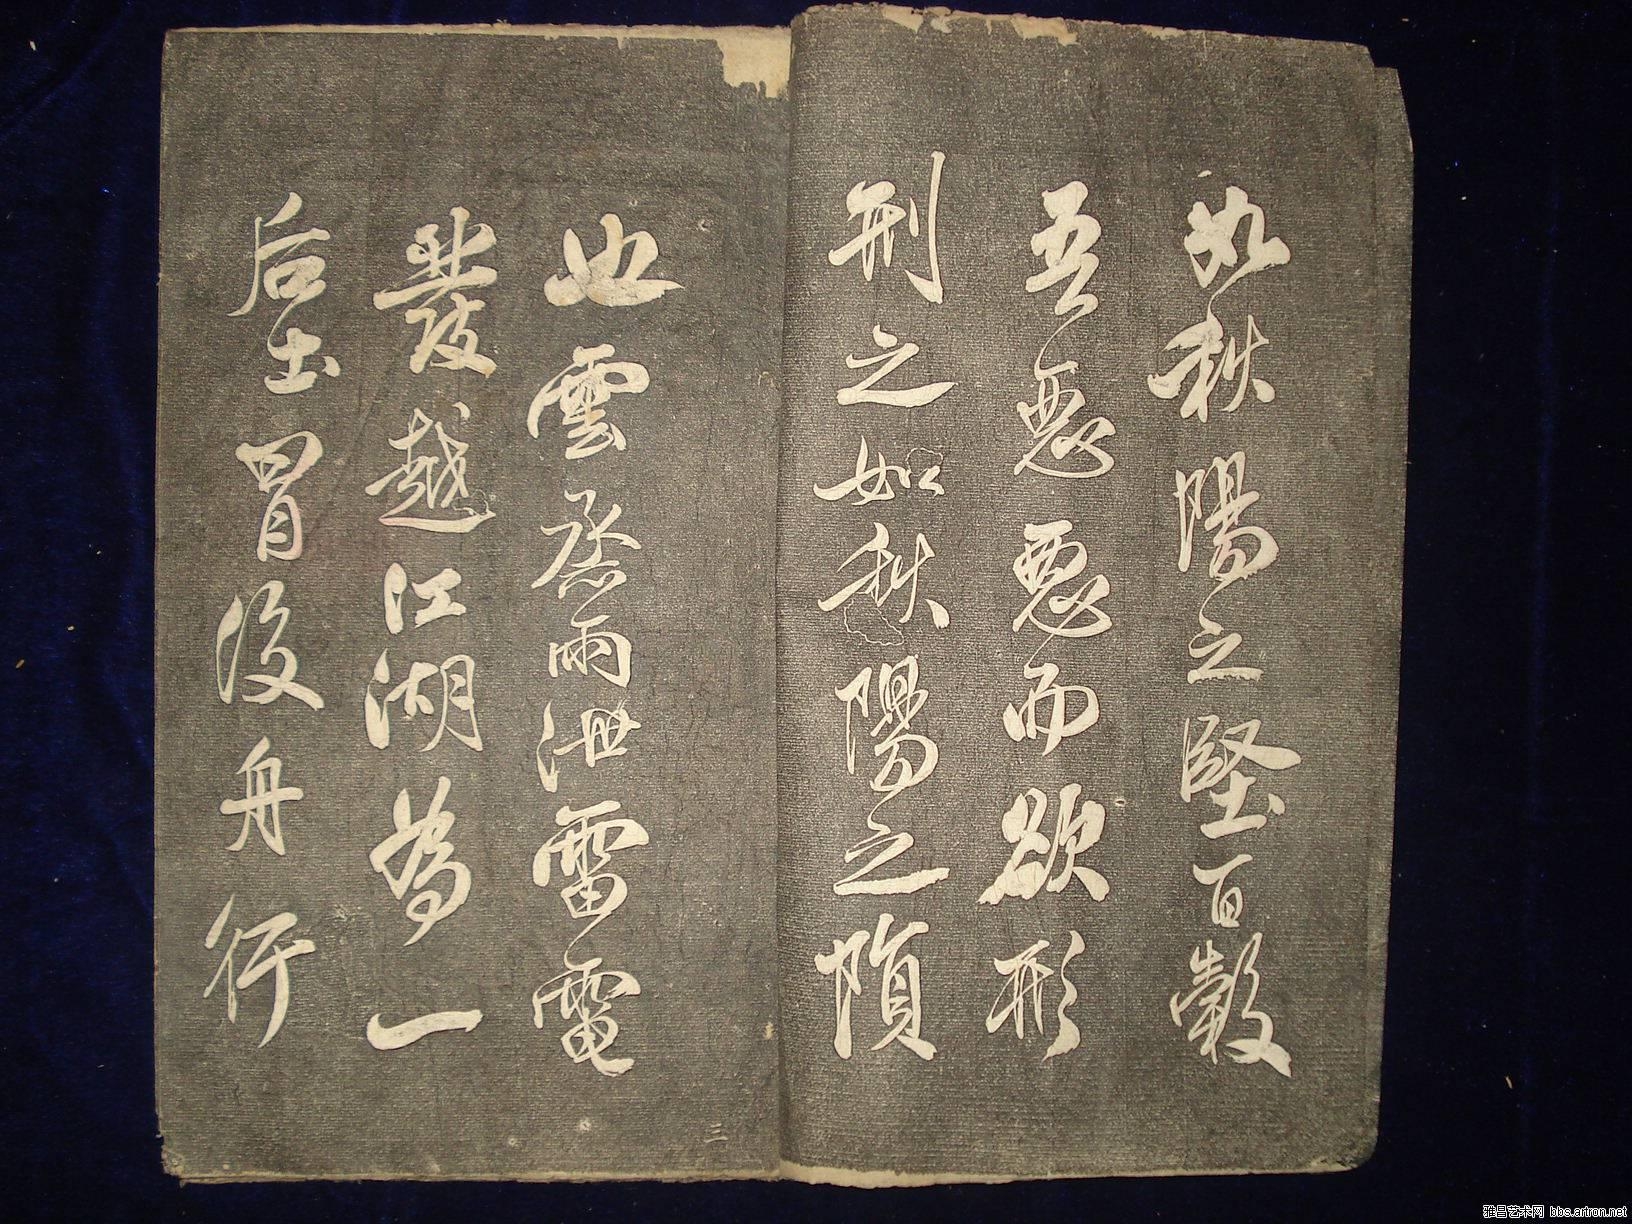 如秋陽之堅百穀
吾惡惡而欲形
刑之如秋陽之隕
也雲烝雨泄雷電
發越江湖為一
后土冒没舟行
三
雅昌艺术网 bbs.artron.net